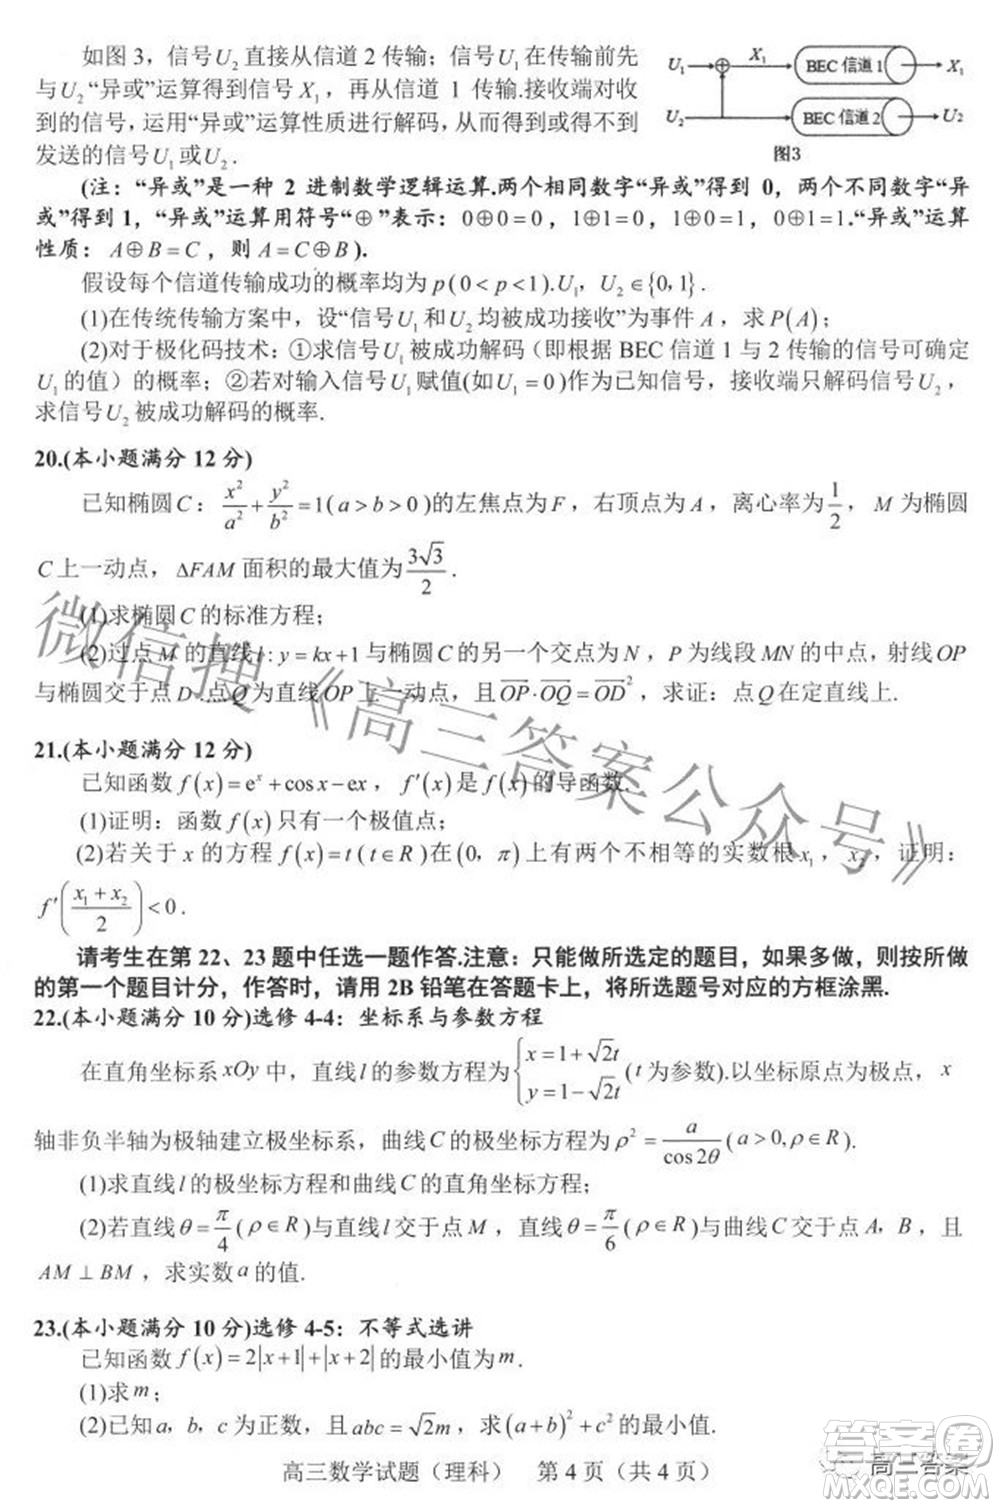 如图 3，信号U₂直接从信道 2 传输；信号U₁在传输前先
与U₂“异或”运算得到信号X₁，再从信道 1 传输.接收端对收
到的信号，运用“异或”运算性质进行解码，从而得到
发送的信号U₁或U₂.
U₁ ⊕ X₁ BEC 信道 1 X₁
U₂ BEC 信道 2 U₂
图3
(注：“异或”是一种 2 进制数学逻辑运算.两个相同数字“异或”得到 0，两个不同数字“异
或”得到 1，“异或”运算用符号“⊕”表示：0⊕0=0，1⊕1=0，1⊕0=1，0⊕1=1.“异或”运算
性质：A⊕B=C，则A=C⊕B).
假设每个信道传输成功的概率均为p(0<p<1).U₁，U₂∈{0,1}.
(1)在传统传输方案中，设“信号U₁和U₂均被成功接收”为事件A，求P(A)；
(2)对于极化码技术：①求信号U₁被成功解码（即根据 BEC 信道 1 与 2 传输的信号可确定
U₁的值）的概率；②若对输入信号U₁赋值(如U₁=0)作为已知信号，接收端只解码信号U₂，
求信号U₂被成功解码的概率.
20.(本小题满分 12 分)
已知椭圆C：x²/a²+y²/b²=1(a>b>0)的左焦点为F，右顶点为A，离心率为1/2，M为椭圆
C上一动点，ΔFAM面积的最大值为3√3/2.
(1)求椭圆C的标准方程；
(2)过点M的直线l:y=kx+1与椭圆C的另一个交点为N，P为线段MN的中点，射线OP
与椭圆交于点D.点Q为直线OP上一动点，且OP·OQ=OD²，求证：点Q在定直线上.
21.(本小题满分 12 分)
已知函数f(x)=eˣ+cosx−ex，f′(x)是f(x)的导函数.
(1)证明：函数f(x)只有一个极值点；
(2)若关于x的方程f(x)=t(t∈R)在(0，π)上有两个不相等的实数根x₁，x₂，证明：
f′((x₁+x₂)/2)<0.
请考生在第 22、23 题中任选一题作答.注意：只能做所选定的题目，如果多做，则按所做
的第一个题目计分，作答时，请用 2B 铅笔在答题卡上，将所选题号对应的方框涂黑.
22.(本小题满分 10 分)选修 4-4：坐标系与参数方程
在直角坐标系xOy中，直线l的参数方程为{x=1+√2t y=1−√2t (t为参数).以坐标原点为极点，x
轴非负半轴为极轴建立极坐标系，曲线C的极坐标方程为ρ²=a/cos2θ(a>0,ρ∈R).
(1)求直线l的极坐标方程和曲线C的直角坐标方程；
(2)若直线θ=π/4(ρ∈R)与直线l交于点M，直线θ=π/6(ρ∈R)与曲线C交于点A，B，且
AM⊥BM，求实数a的值.
23.(本小题满分 10 分)选修 4-5：不等式选讲
已知函数f(x)=2|x+1|+|x+2|的最小值为m.
(1)求m；
(2)已知a，b，c为正数，且abc=√2m，求(a+b)²+c²的最小值.
高三数学试题（理科） 第 4 页（共 4 页）
微信搜《高三答案公众号》
答案圈
高三答案